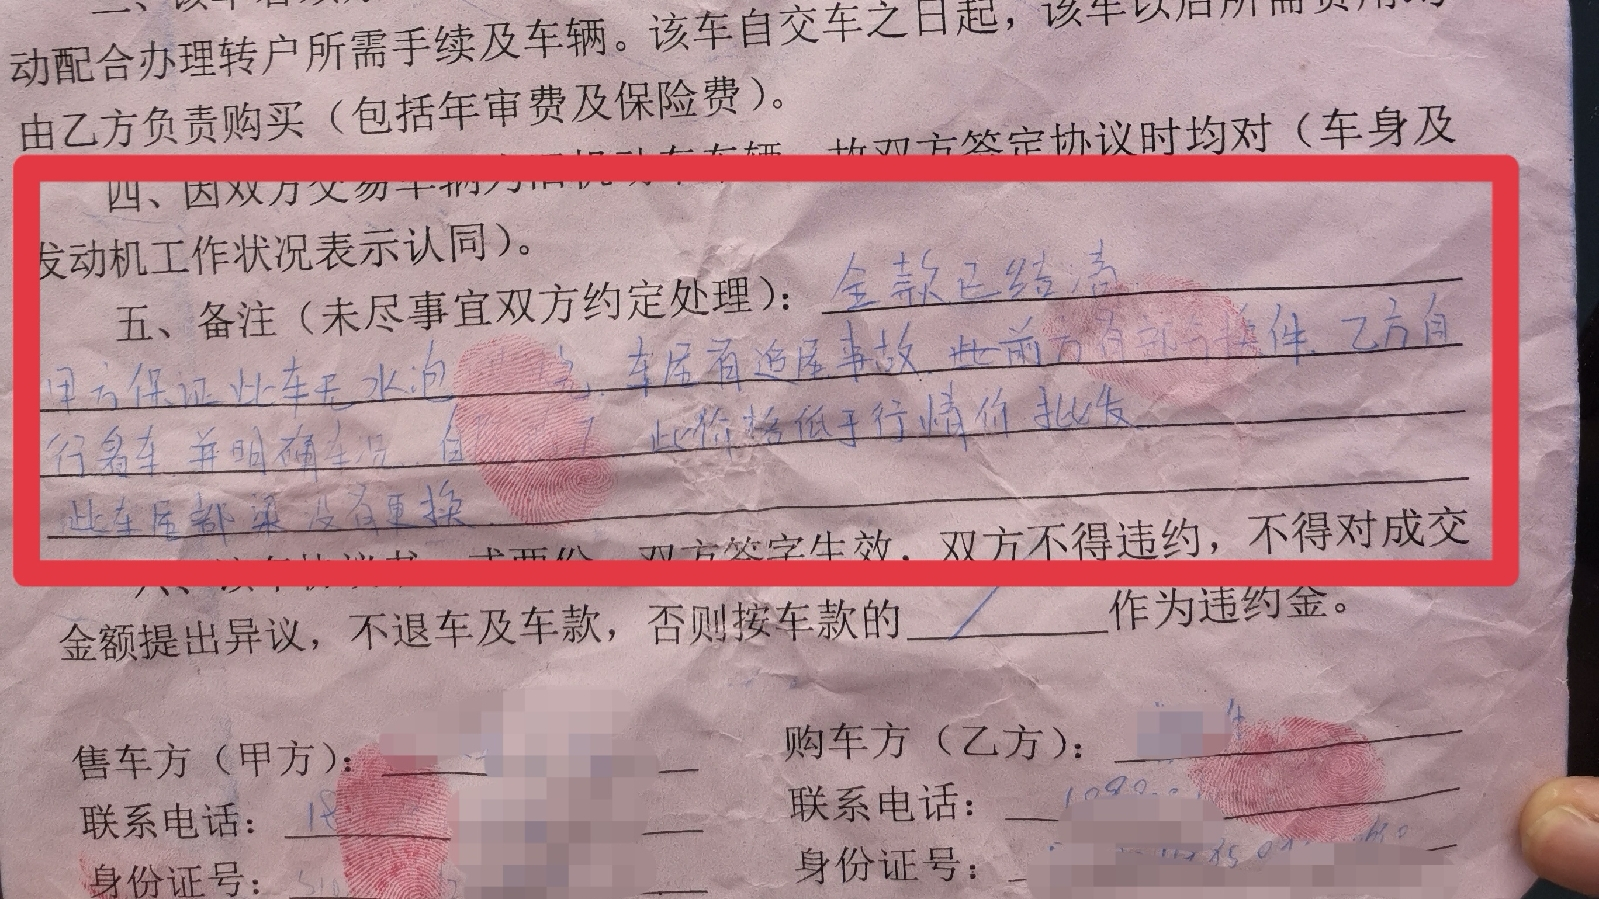 动配合办理转户所需手续及车辆。该车自交车之日起，该车以后所需费用均
由乙方负责购买（包括年审费及保险费）。
四、因双方交易车辆为旧机动车车辆，故双方签定协议时均对（车身及
发动机工作状况表示认同）。
五、备注（未尽事宜双方约定处理）：全款已结清
甲方保证此车无水泡 车尾有追尾事故 此前方有部分换件，乙方自
行看车 并明确车况 自 此价格低于行情价 批发
此车尾部梁没有更换
双方签字生效，双方不得违约，不得对成交
金额提出异议，不退车及车款，否则按车款的 / 作为违约金。
售车方（甲方）：
购车方（乙方）：
联系电话：18
联系电话：
身份证号：
身份证号：